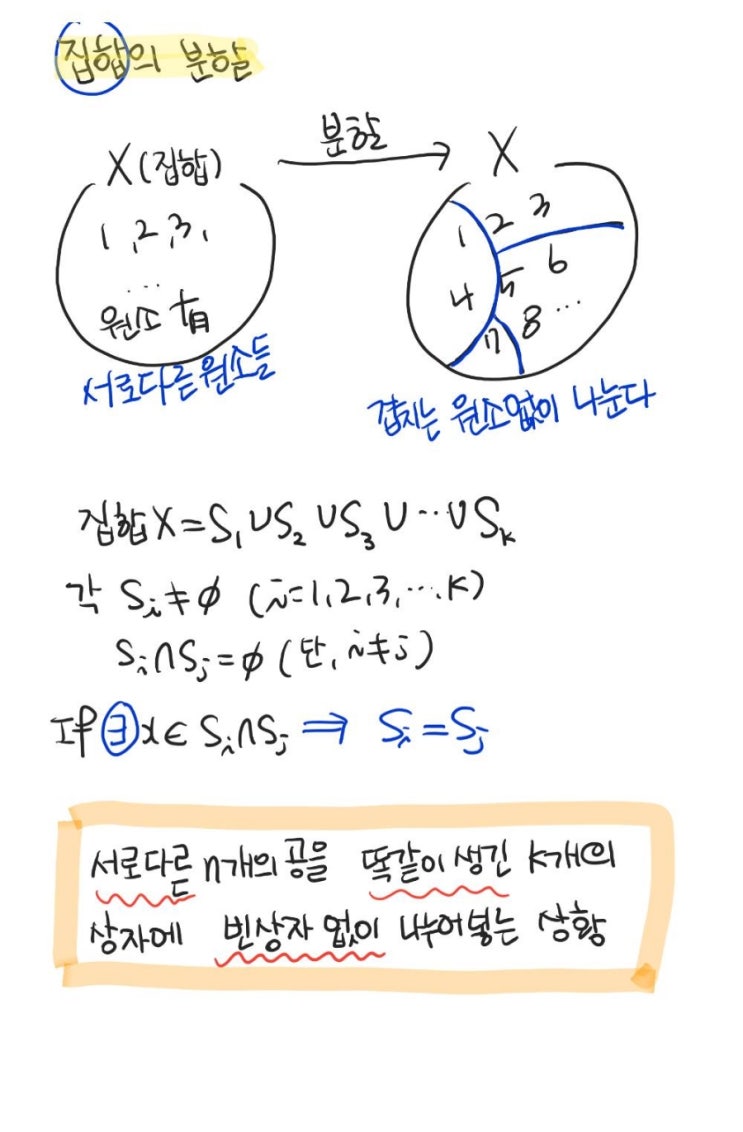 집합의 분할
X(집합)
분할
X
1, 2, 3,
...
원소 n개
서로다른원소들
1 2 3
4 5 6
7 8 ...
겹치는 원소없이 나눈다
집합 X = S₁∪S₂∪S₃∪⋯∪Sₖ
각 Sᵢ≠∅ (i=1,2,3,⋯,k)
Sᵢ∩Sⱼ=∅ (단, i≠j)
If ∃x∈Sᵢ∩Sⱼ ⟹ Sᵢ=Sⱼ
서로다른 n개의 공을 똑같이 생긴 k개의
상자에 빈상자 없이 나누어넣는 상황